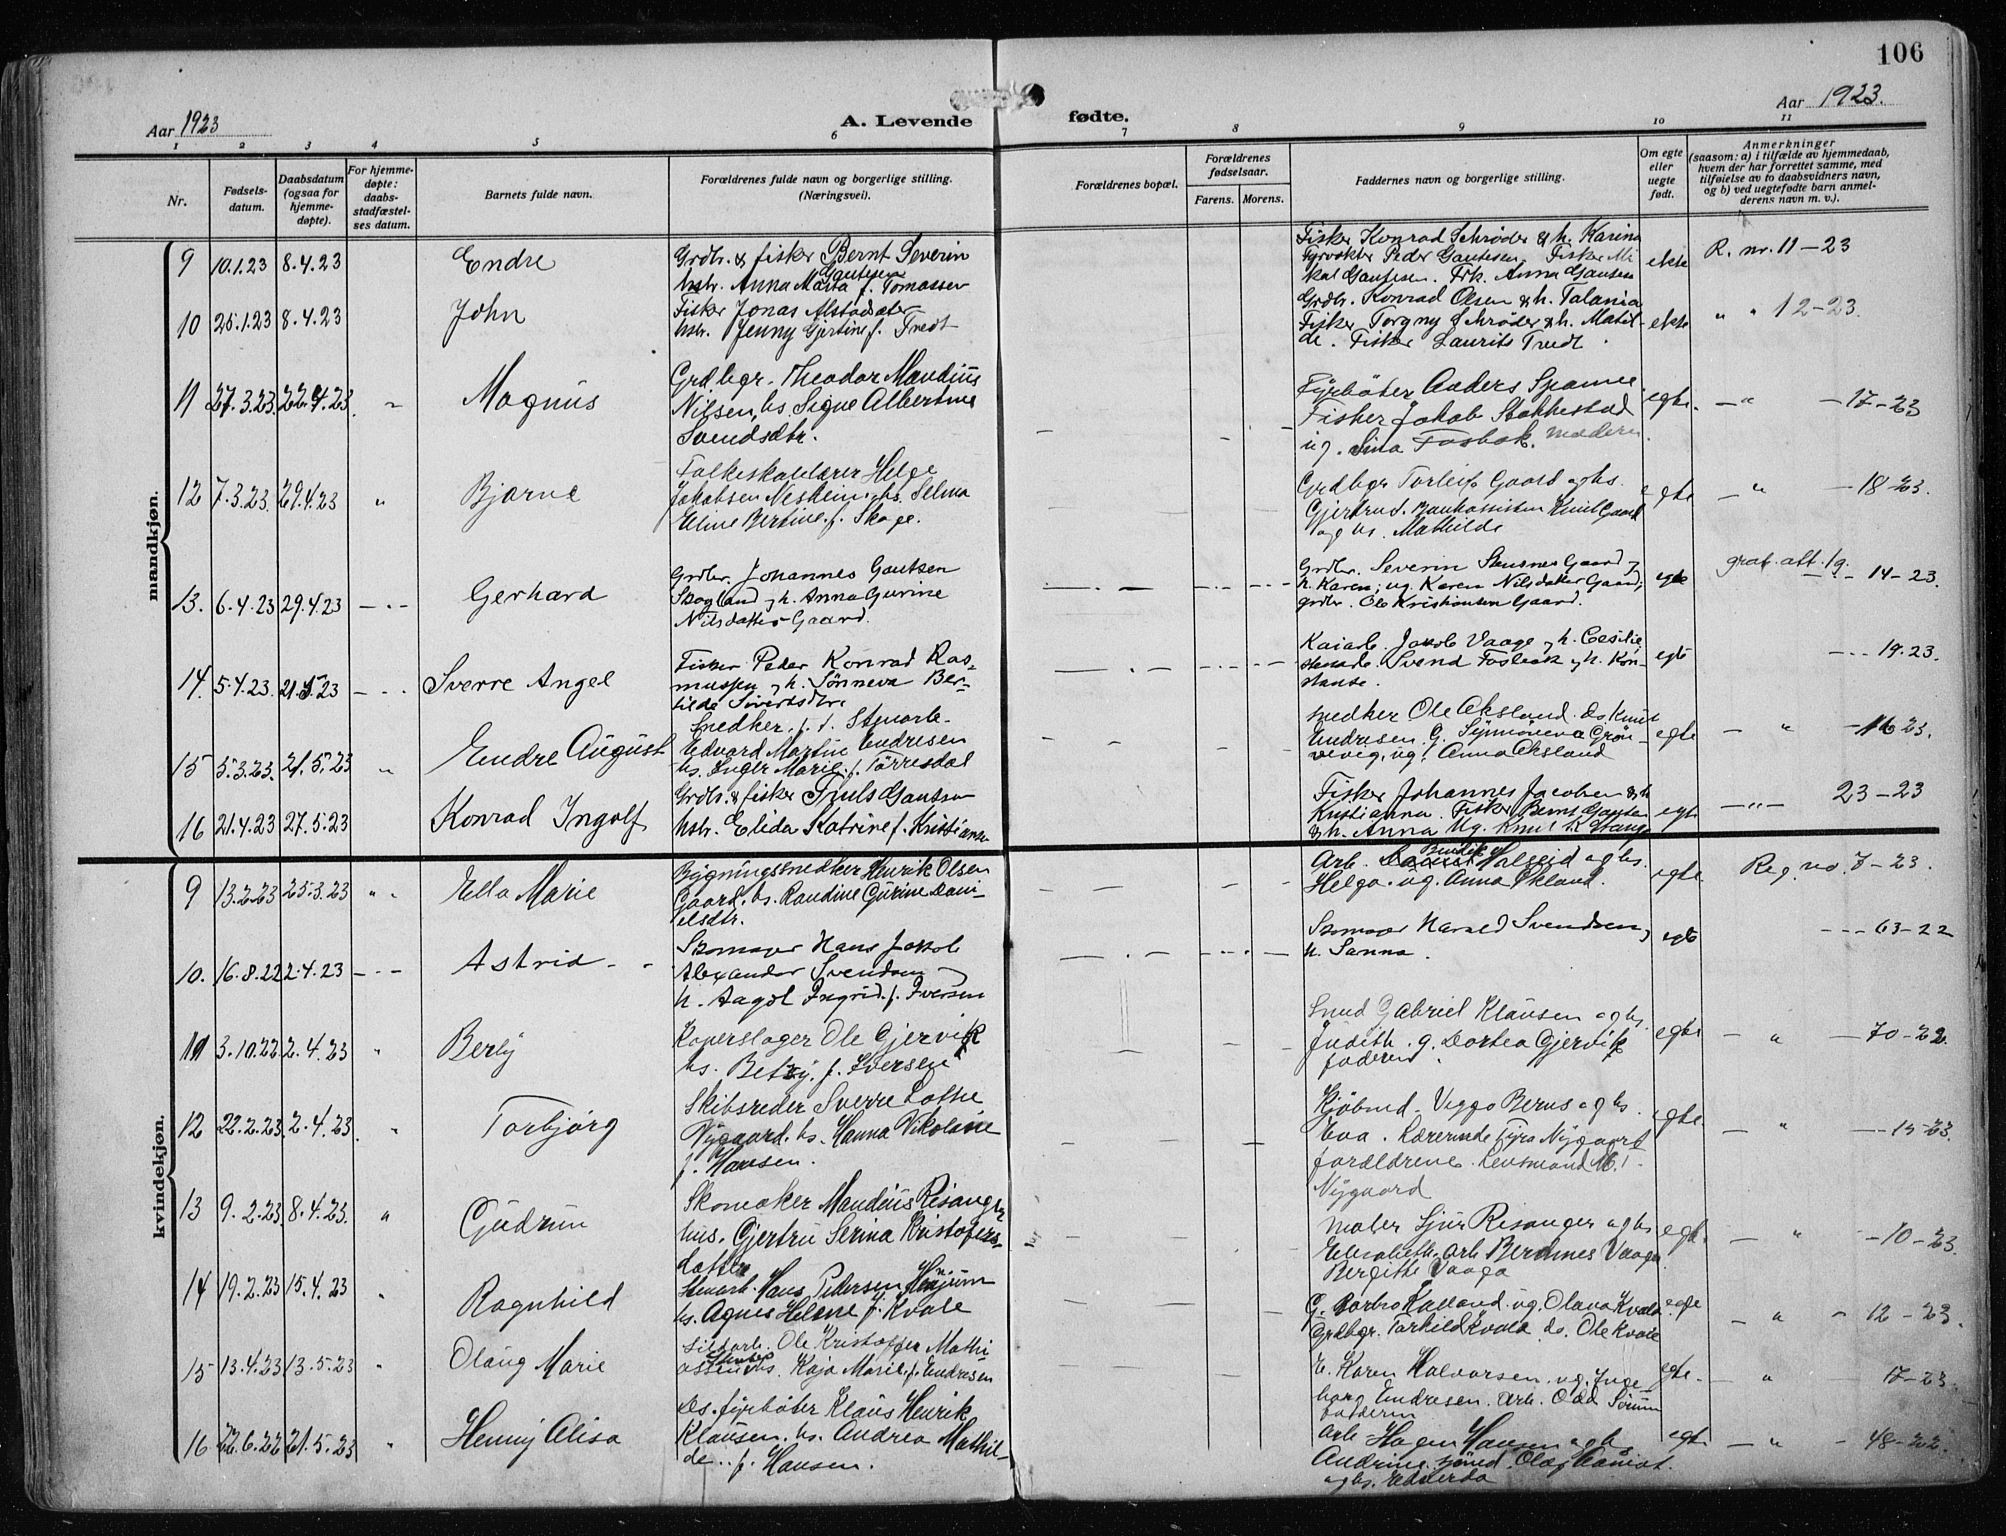 106
Aar 1923
A. Levende fødte.
Aar 1923.
1 2 3 4 5 6 7 8 9 10 11
Nr.
Fødselsdatum.
Daabsdatum (ogsaa for hjemmedøpte).
For hjemmedøpte: daabsstadfæstelses datum.
Barnets fulde navn.
Forældrenes fulde navn og borgerlige stilling. (Næringsvei).
Forældrenes bopæl.
Forældrenes fødselsaar.
Farens. Morens.
Faddernes navn og borgerlige stilling.
Om egte eller uegte født.
Anmerkninger
(saasom: a) i tilfælde av hjemmedaab, hvem der har forrettet samme, med tilføielse av to daabsvidners navn, og b) ved uegtefødte barn anmelderens navn m. v.).
mandkjøn.
9 10.1.23 8.4.23 Endre
Grdbr. & fisker Bernt Severin
Gautesen
hstr. Anna Marta f. Tomassen
Fisker Konrad Schrøder & h. Karina
Fyrvokter Peder Gautesen. Fisker Mi
kal Gautesen. Frk. Anna Gautesen
ekte R. nr. 11-23
10 25.1.23 8.4.23 John
Fisker Jonas Alstadsæter
hstr. Jenny Gjertine f. Tvedt
Grdbr. Konrad Olsen & h. Talania
Fisker Torgny Schrøder & h. Matil-
de. Fisker Laurits Tvedt.
ekte " " 12-23.
11 27.3.23 22.4.23. " Magnus
Grdbgr. Theodor Maudius
Nilsen, hs. Signe Albertine
Svendsdtr.
Fyrbøter Anders Spanne
Fisker Jakob Stakkestad
ug. Sina Fosbak. moderen.
egte. — " — 17-23
12 7.3.23. 29.4.23 " Bjarne
Folkeskolelærer Helge
Jakobsen Neshein, hs. Selma
Eline Bertine f. Skoge.
Grdbgr Torleif Gaard og hs.
Gjertrud. Bankassisten Knut Gaard
og hs. Mathilde
egte — " — 18-23.
13. 6.4.23 29.4.23 — " — Gerhard
Grdbr. Johannes Gautsen
Skogland, h. Anna Gurine
Nilsdatter Gaard.
Grdbr. Severin Gaard,
h. Karen; ug Karen Nilsdatter Gaard;
grdbr. Ole Kristiansen Gaard.
egte 14-23.
14. 5.4.23. 21.5.23 — " — Sverre Angel
Fisker Peder Konrad Ras-
mussen, h. Sønneva Ber-
tilde Sivertsdtr
Kaiarb. Jakob Vaage, h. Cecilie,
Svend Fosbak, h. Kon-
stanse.
egte — " — 19.23.
15 5.3.23. 21.5.23 " Endre August
Snedker, f. t. Stuarb.
Edvard Martin Endresen
hs. Inger Marie f. Torresdal
snedker Ole Eksland. ds. Knut
Endresen. G. Synnöveva Grön-
nevig, ug. Anna Eksland
egte — " — 16 23.
16 21.4.23 27.5.23 Konrad Ingolf
Grdbr. & fisker Truls Gautsen
hstr. Elida Katrine f. Kristiansen
Fisker Johannes Jacobsen & h
Kristianna. Fisker Bernt Gautsen
& h. Anna Ug. Knut K
egte — " — 23-23
kvindekjøn.
9 13.2.23 25.3.23 " " Ella Marie
Bygningssnedker Henrik Olsen
Gaard, hs. Randine Gurine Dani-
elsdtr.
Arb. Halseid og hs.
Helga. ug. Anna Økland.
egte Reg. no. 7-23.
10. 16.8.22 2.4.23 — " — Astrid
Skomager Hans Jakob
Alexander Svendsen,
h. Aagot Ingrid f. Iversen
Skomager Harald Svendsen,
h. Sanna.
egte — " — 63-22
11 3.10.22 2.4.23 " Berly
Koperslager Ole Gjervik
hs. Betzy f. Iversen
Smed Gabriel Klausen og hs.
Judith. g. Dortea Gjervik
faderen.
egte — " — 70-22.
12 22.2.23. 2.4.23. " Torbjørg
Skibsreder Sverre Lothe
Nygaard. hs. Hanna Nikoline
f. Hansen.
Kjöbmd. Viggo Berns og hs.
Eva. Lærerinde Fyra Nygaard
forældrene. Lensmand M. I.
Nygaard
egte — " — 15-23.
13 9.2.23 8.4.23. " Gudrun
Skomaker Maudius Risanger
hus. Gjertru Serina Kristofers-
datter
maler Sjur Risanger og hs
Elisabeth. arb. Berdines Vaage
Bergithe Vaage
egte — " — 10-23.
14 19.2.23 15.4.23 " Ragnhild
Hans Pedersen
hs. Agnes Helene f. Kvale
G. Barbro Kalland. ug. Olava Kvale
Grdbgr. Torkild Kvale ds. Ole Kvale
egte — " — 12-23.
15 13.4.23 13.5.23 " Olaug Marie
Sildarb. Ole Kristoffer Mathi-
assen hs. Kaja Marie f. Endresen
E. Karen Halvorsen. ug. Inge-
borg Endresen. Arb. Odd
faderen
egte. — " — 17-23.
16 22.6.22 21.5.23 " Henny Alisa
Ds. fyrbøter Klaus Henrik
Klausen. hs. Andrea Mathil-
de. f. Hansen.
arb Hagen Hansen og hs
Andrine. Olaf
og hs. Edvarda
egte — " — 48-22.